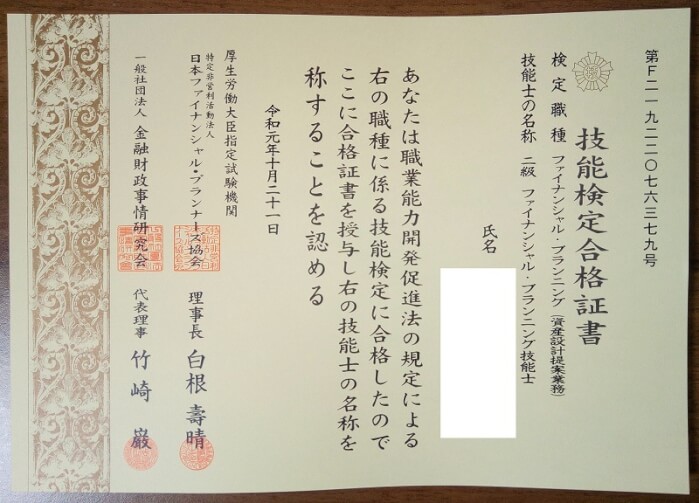 第F二一九二二〇七六三七九号
技能検定合格証書
検定職種 ファイナンシャル・プランニング（資産設計提案業務）
技能士の名称 二級 ファイナンシャル・プランニング技能士
氏名
あなたは職業能力開発促進法の規定による
右の職種に係る技能検定に合格したので
ここに合格証書を授与し右の技能士の名称を
称することを認める
令和元年十月二十一日
厚生労働大臣指定試験機関
特定非営利活動法人
日本ファイナンシャル・プランナーズ協会 理事長 白根壽晴
一般社団法人 金融財政事情研究会 代表理事 竹崎巌